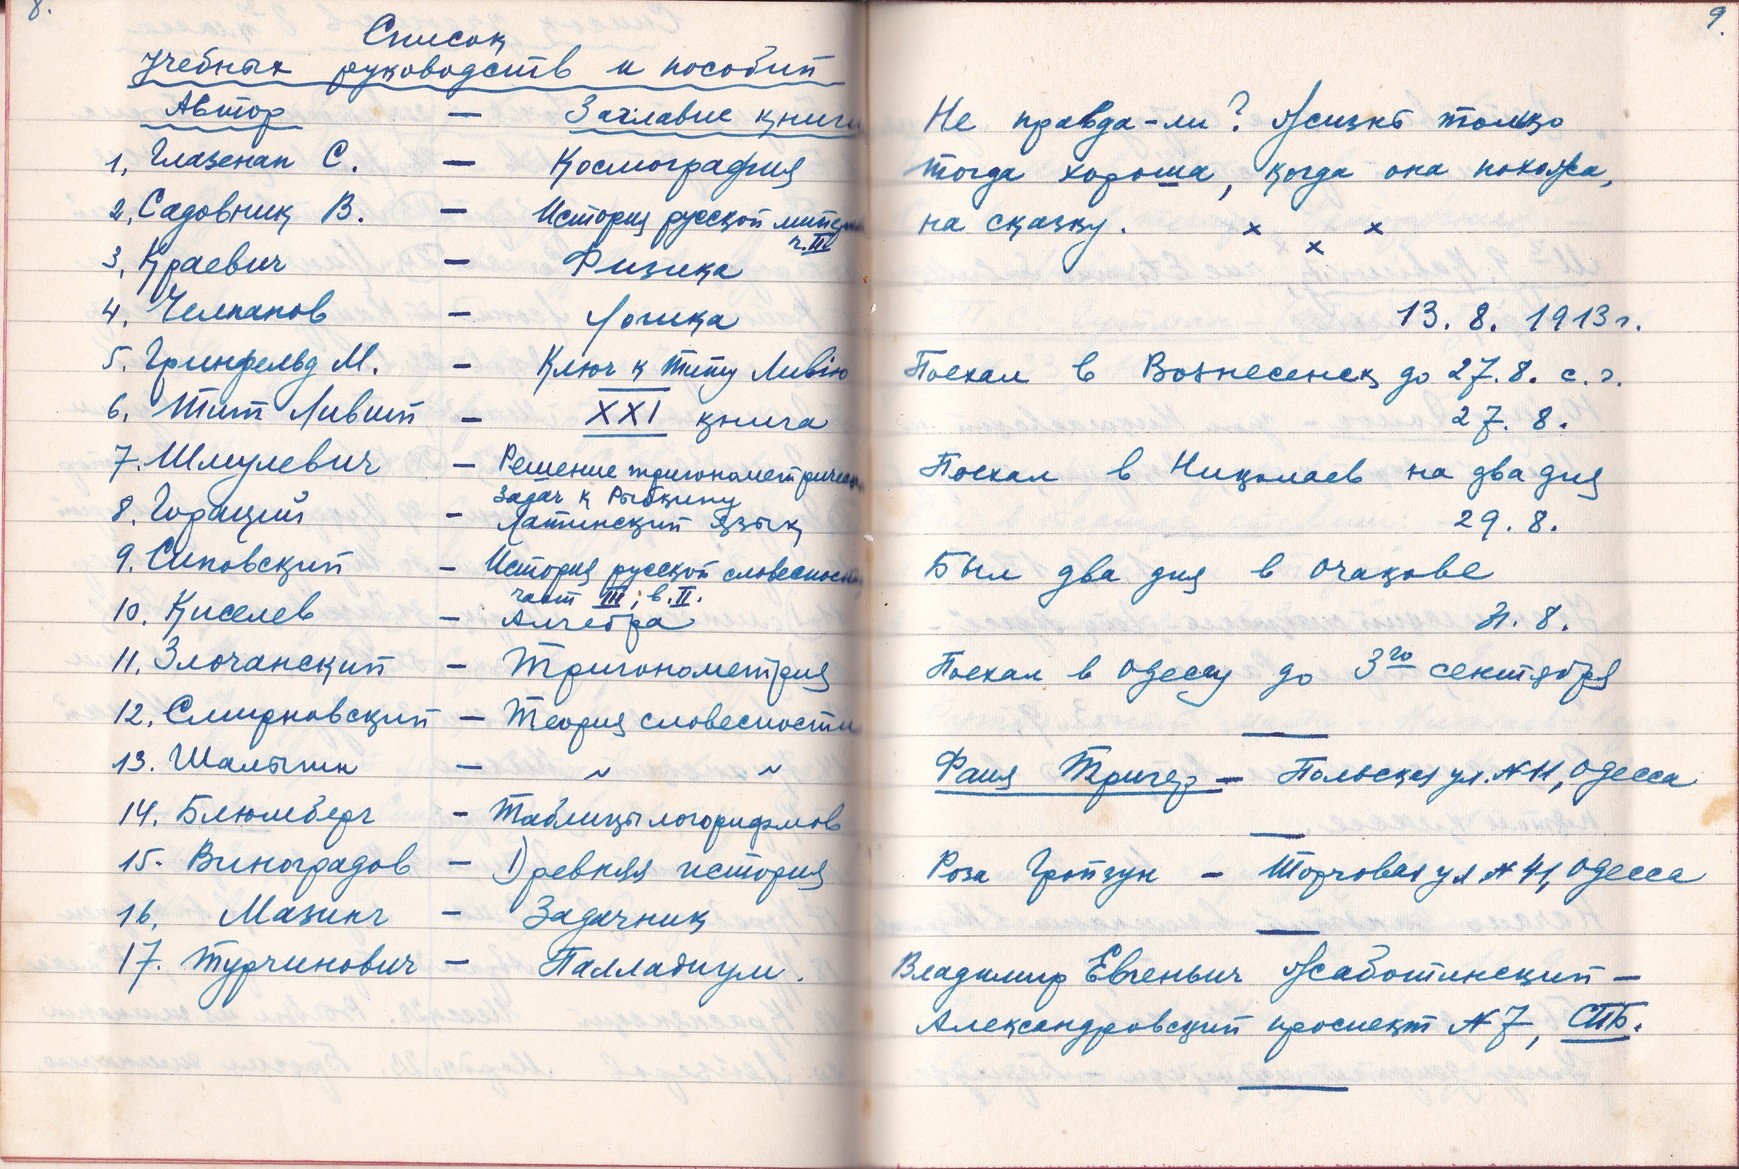 8.
Список
учебных руководств и пособий
Автор — Заглавие книги
1. Глазенап С. — Космография
2. Садовник В. — История русской
ч. III
3. Краевич — Физика
4. Челпанов — Логика
5. Гринфельд М. — Ключ к Титу Ливію
6. Тит Ливий — XXI книга
7. Шмулевич — Решение тригонометрическ
задач к Рыбкину
8. Горацій — Латинский язык
9. Сиповский — История русской словесности
част III, в. II.
10. Киселев — Алгебра
11. Злочанский — Тригонометрия
12. Смирновский — Теория словесности
13. Шалыгин — ~ ~
14. Блюмберг — Таблицы логорифмов
15. Виноградов — Древняя история
16. Мазинг — Задачник
17. Турчинович — Палладиум.
9.
Не правда-ли? Жизнь только
тогда хороша, когда она похожа,
на сказку. × × ×
13. 8. 1913 г.
Поехал в Вознесенск до 27. 8. с. г.
27. 8.
Поехал в Николаев на два дня
29. 8.
Был два дня в Очакове
31. 8.
Поехал в Одессу до 3го сентября
Фаня Тригер — Польская ул. № 11, Одесса
Роза Гройзун — Торговая ул № 41, Одесса
Владимир Евгеньич Жаботинский —
Александровский проспект № 7, СПБ.